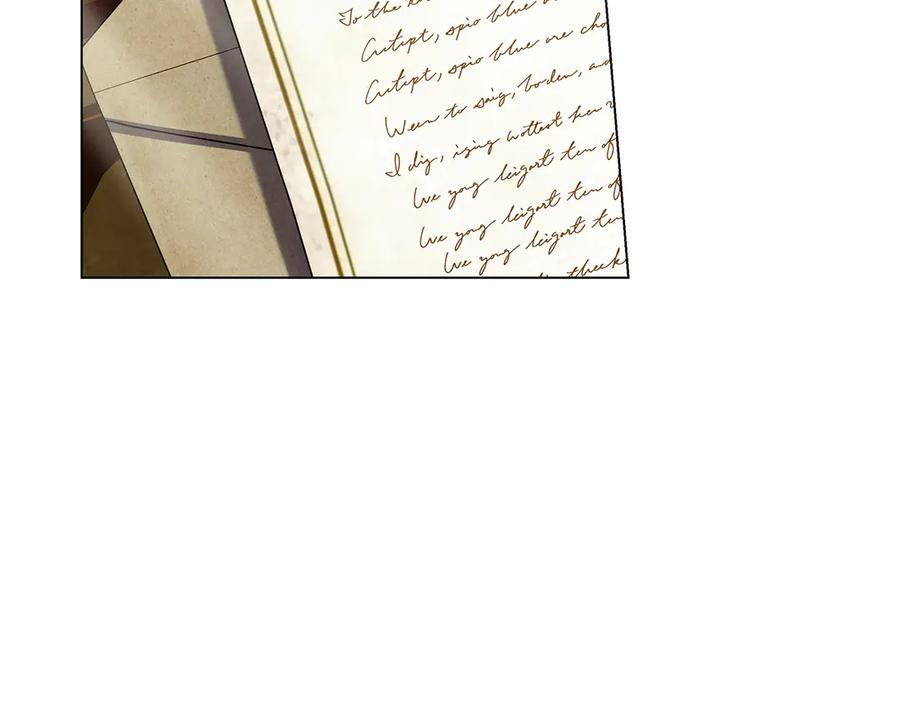 To the
Cutept, spio blue
Cutept, spio blue are cho
Ween to saig, boden, and
I dig, ising wottest hen
We yong leigart ten of
We yong leigart ten of
We yong leigart ten
theek